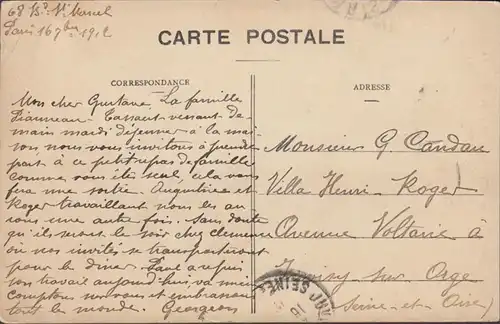 68 Bd St Marcel
Paris 16 7bre 1912
CARTE POSTALE
CORRESPONDANCE
ADRESSE
Mon cher Gustave, La famille
venant de
main mardi déjeuner à la mai
son nous vous invitons à prendre
part à ce petit repas de famille
comme vous êtes seul, cela vous
fera une sortie. Augustine et
Roger travaillant nous les au
rons une autre fois. Sans doute
qu'ils seront le soir chez
où nos invités se transporteront
pour le diner. Paul a repris
son travail aujourd'hui, va
comptons sur vous et embrassons
tout le monde. Georgeon
Monsieur G. Candau
Villa Henri-Roger
Avenue Voltaire à
Juvisy sur Orge
Seine-et-Oise
SEINE